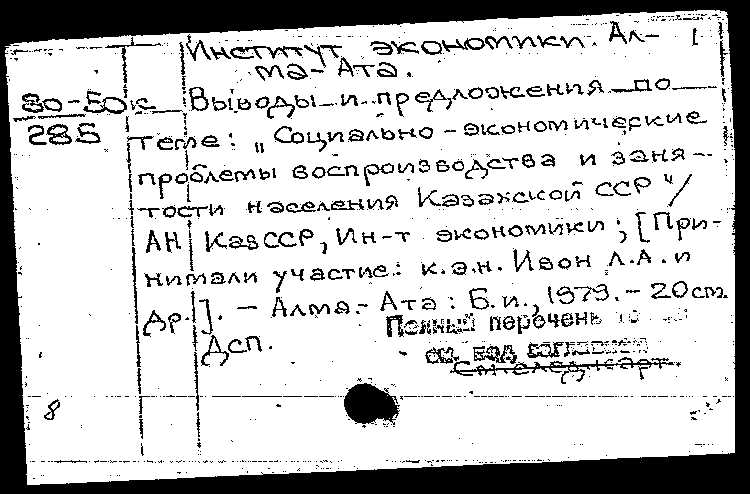 Институт экономики. Ал- 1
ма-Ата.
80-50к Выводы и предложения по
285 теме: „Социально-экономические
проблемы воспроизводства и заня-
тости населения Казахской ССР"/
АН КазССР, Ин-т экономики; [При-
нимали участие: к.э.н. Ивон Л.А. и
др.]. - Алма-Ата: Б.и., 1979. - 20 cm.
Полный перечень
Дсп.
см. под заглавием
См. след. карт.
8